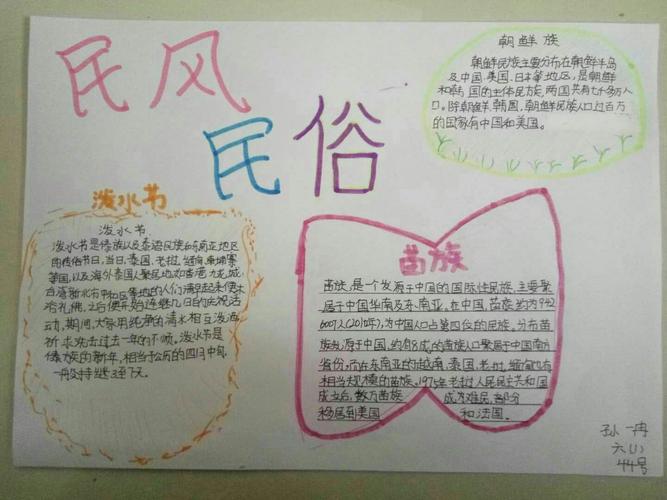 民风
民俗
朝鲜族
朝鲜民族主要分布在朝鲜半岛
及中国、美国、日本等地区，是朝鲜
和韩国的主体民族，两国共有七千多万人
口。除朝鲜、韩国，朝鲜民族人口过百万
的国家有中国和美国。
泼水节
泼水节
泼水节是傣族以及泰语民族和东南亚地区
的传统节日，当日，泰国、老挝、缅甸、柬埔寨
等国，以及海外泰国人聚居地如香港九龙城、
台湾新北市中和区等地的人们清早起来便沐
浴礼佛，之后便开始连续几日的庆祝活
动，期间，大家用纯净的清水相互泼洒，
祈求洗去过去一年的不顺。泼水节是
傣族的新年，相当于公历的四月中旬，
一般持续3至7天。
苗族
苗族，是一个发源于中国的国际性民族，主要聚
居于中国华南及东南亚。在中国，苗族约为942
6007人(2010年)，为中国人口占第四位的民族。分布苗
族发源于中国，约有8成的苗族人口聚居于中国南方
省份。而在东南亚的越南、泰国、老挝、缅甸也有
相当规模的苗族。1975年老挝人民民主共和国
成立后，数万苗族 成为难民，部分
移居到美国 和法国。
孙一冉
六(1)
44号